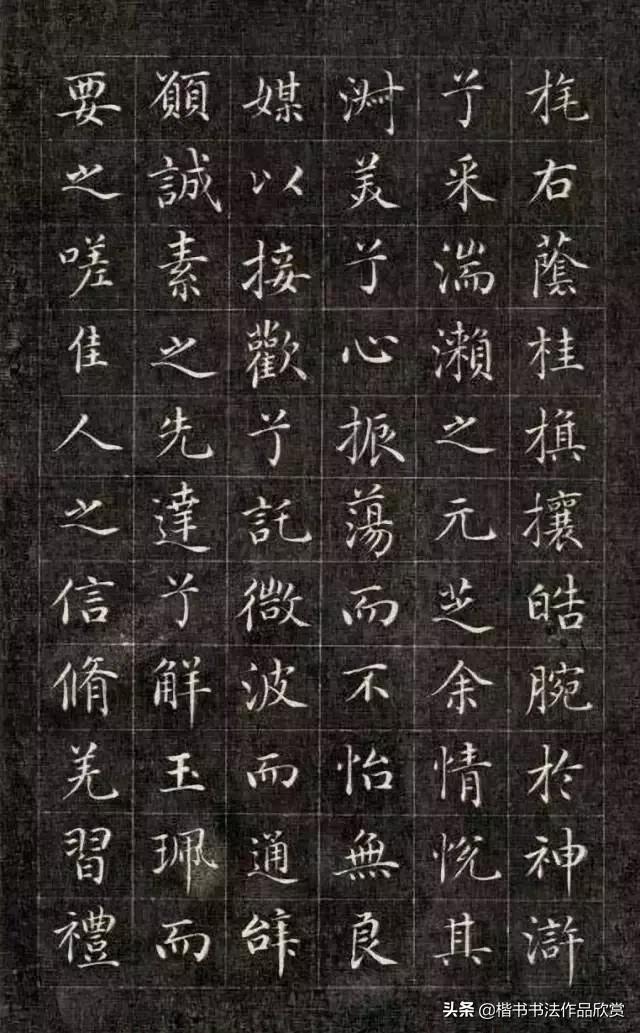 旄右蔭桂旗攘皓腕於神滸
兮采湍瀨之元芝余情悅其
淑美兮心振蕩而不怡無良
媒以接歡兮託微波而通辭
願誠素之先達兮解玉珮而
要之嗟佳人之信脩羌習禮
头条 @楷书书法作品欣赏